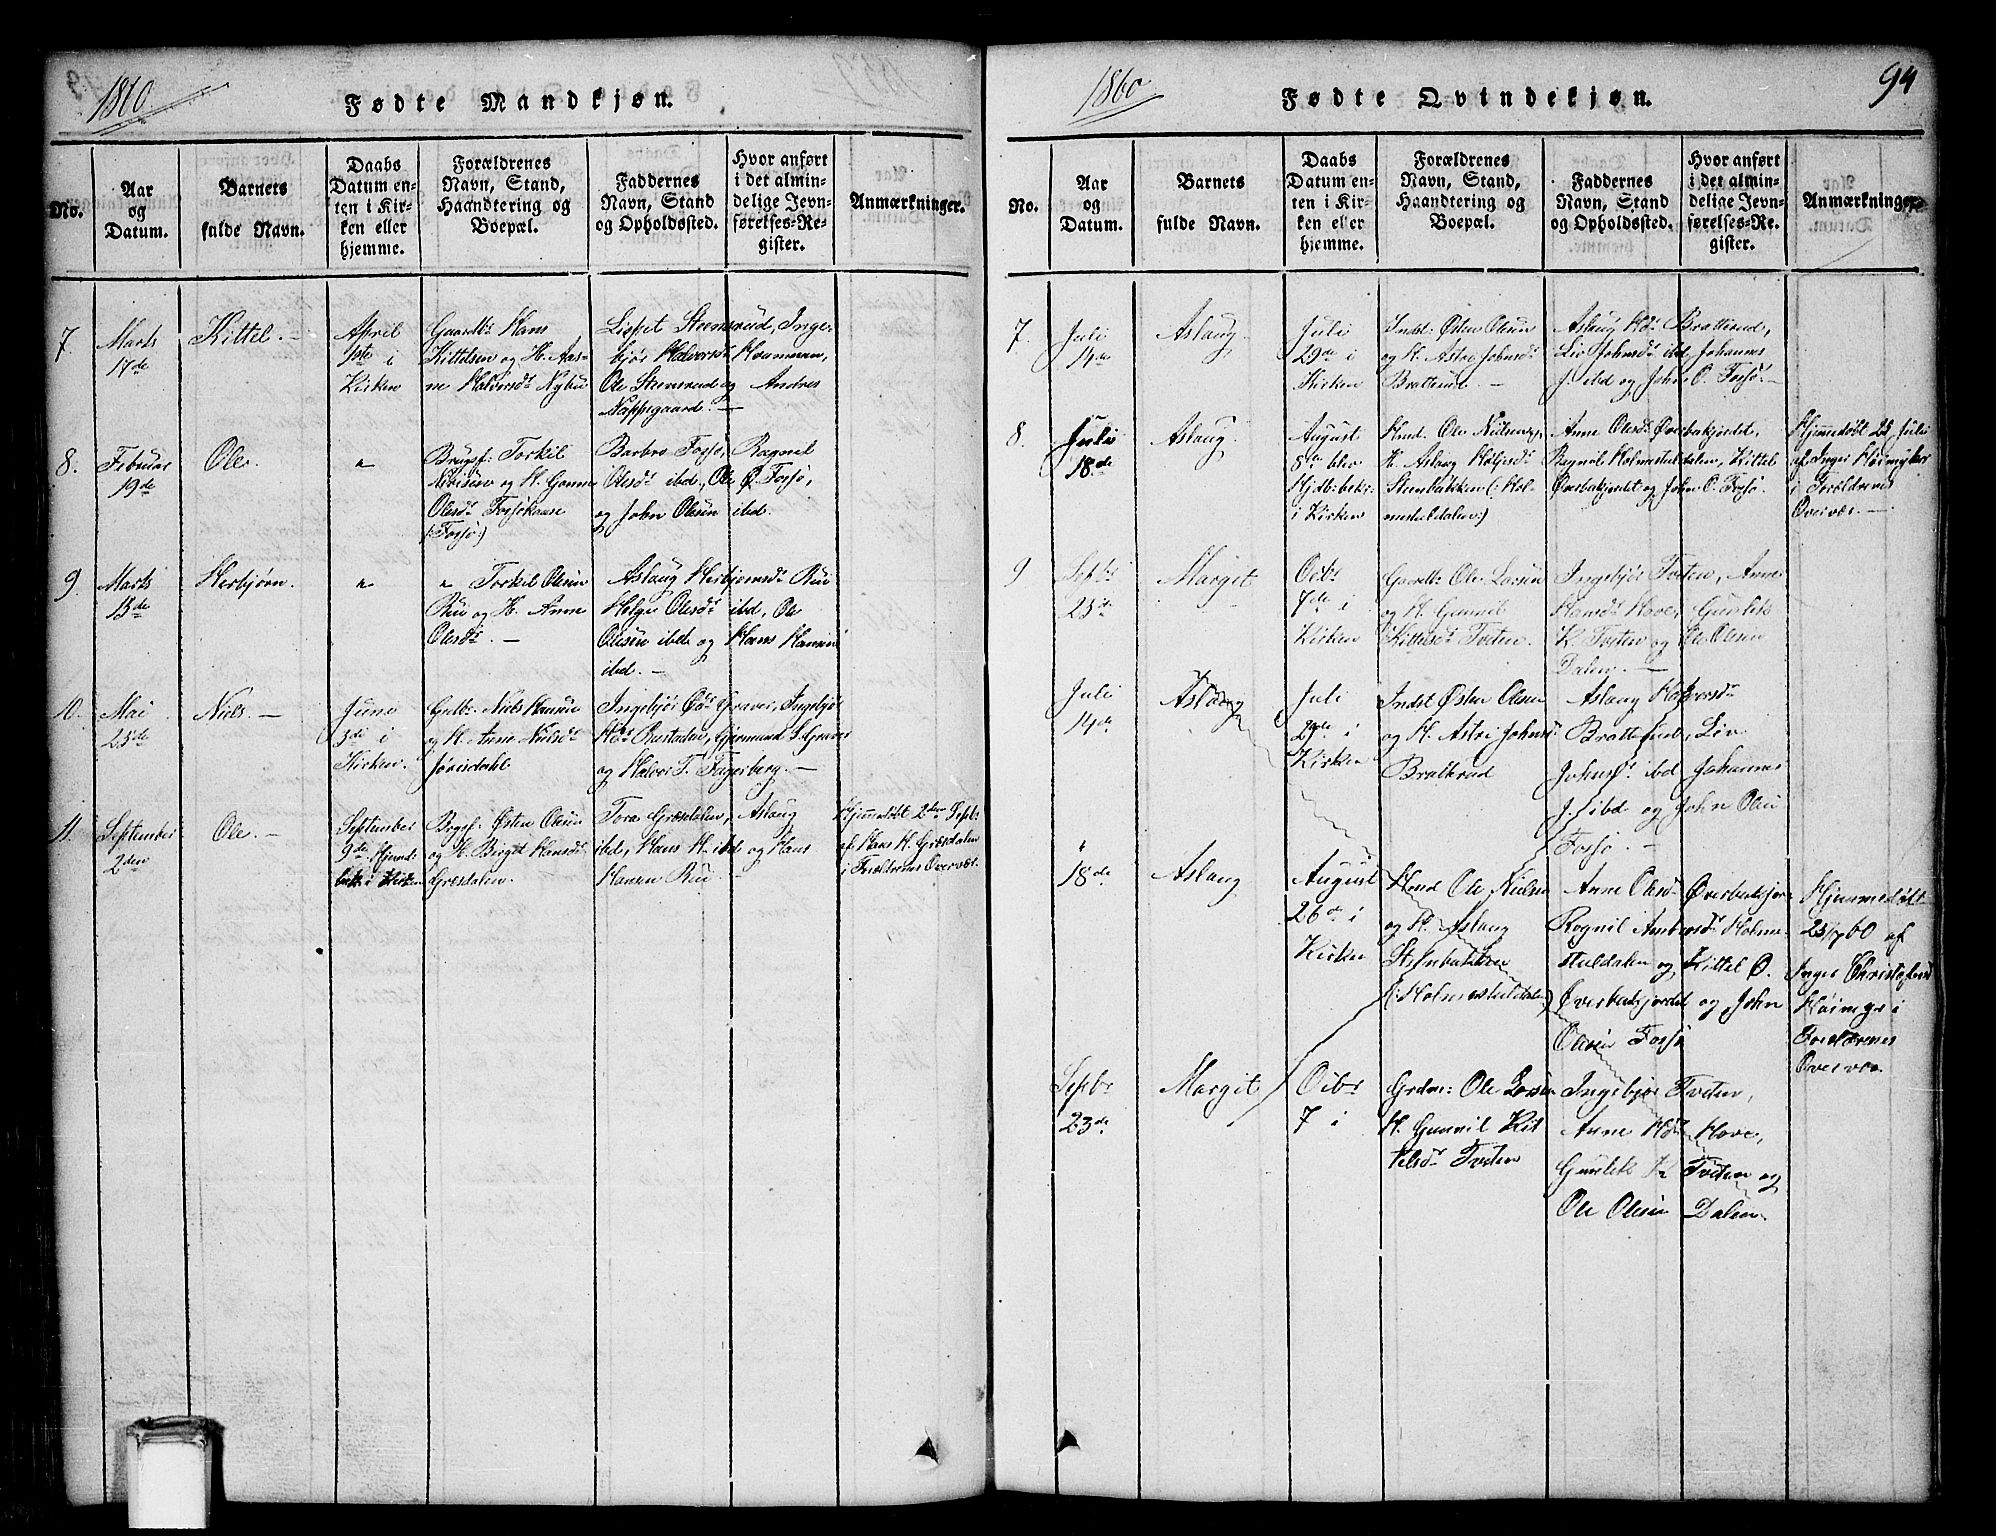 1860
Fødte Mandkjøn.
No.
Aar
og
Datum.
Barnets
fulde Navn.
Daabs
Datum en-
ten i Kir-
ken eller
hjemme.
Forældrenes
Navn, Stand,
Haandtering og
Boepæl.
Faddernes
Navn, Stand
og Opholdssted.
Hvor anført
i det almin-
delige Jevn-
førelses-Re-
gister.
Anmærkninger.
7.
Marts
17de
Kittel. —
April
1ste i
Kirken
Gaardbr. Hans
Kittelsen og H. Aas-
ne Halvorsdr Nybu
Lispet Stensrud, Inge-
bjør Halvorsdr
Ole Stensrud og Andres
Nappegaard. —
8.
Februar
19de
Ole.
"
Brugsf: Torkil
og H. Gonne
Olesdr
(Fossø:)
Barbro Fossø, Ragnil
Olesdr ibd., Ole Ø. Fossø,
og John Olesen ibd.
9
Marts
13de
Herbjørn.
"
" Torkil Olesen
Ruu og H. Anne
Olesdr. —
Aslaug Herbjørnsdr Ruu
Helge Olesdr ibd, Ole
Olesen ibd og Hans Hansen
ibd. —
10.
Mai
25de
Niels. —
Juno
3di i
Kirken.
Gulbr. Niels Hansen
og H. Anne Nielsdr
Jørisdahl.
Ingebjør Graver, Ingebjør
Gjermund S. Graver
og Halvor T. Fagerberg. —
11.
September
2den
Ole. —
September
9de Hjemd:
bekr. i Kirken
Brgsf: Østen Olesen
og H. Birgit Hansdr
Græsdalen.
Tora Græsdalen, Aslaug
ibd, Hans H. ibd og Hans
Hansen Ruu —
Hjemmedøbt 2den Septb:
af Hans H. Græsdalen
i Forældrenes Overvær.
1860
Fødte Qvindekjøn.
94
No.
Aar
og
Datum.
Barnets
fulde Navn.
Daabs
Datum en-
ten i Kir-
ken eller
hjemme.
Forældrenes
Navn, Stand,
Haandtering og
Boepæl.
Faddernes
Navn, Stand
og Opholdssted.
Hvor anført
i det almin-
delige Jevn-
førelses-Re-
gister.
Anmærkninger.
7.
Juli
14de
Aslaug.
Juli
29de i
Kirken
Indst: Østen Olesen
og H. Astri Johnsdr
Bratterud. —
Aslaug Hd: Bratterud,
Liv Johnsdr ibd Johannes
J. ibd og John O. Fossø. —
8.
Juli
18de
Aslaug.
August
5te blev
Hjdb: bekr:
i Kirken
Hmd. Ole Nielsen,
H. Aslaug Helgesdr
Stenbakken (: Hol-
mestuldalen:)
Anne Olesdr Øverbakjordet,
Ragnil Holmestuldalen, Kittel
Øverbakjordet og John O. Fossø.
Hjemmedøbt 23 Juli
af Inger Høimyhr
i Forældrenes
Overvær. —
9
Septbr
23de
Margit
Octbr
7de i
Kirken
Gaardbr. Ole Larsen
og H. Gunnil
Kittelsdr Tveten.
Ingebjør Tveten, Anne
Hansdr Hove, Gunlek
K. Tveten og Ole Olesen
Dalen. —
Juli
14de
Aslaug
Juli
29de i
Kirken
Indst Østen Olesen
og H. Astri Johnsdr
Bratterud
Aslaug Halvorsdr
Bratterud, Liv
Johnsdr ibd Johannes
J. ibd og John Olsen
Fossø. —
"
18de
Aslaug
August
26de i
Kirken
Hmd Ole Nielsen
og H. Aslaug
Stenbakken
(:Holmestuldalen)
Anne Olesdr Øverbakjor
Ragnil Andersdr Holme-
stuldalen og Kittel O.
Øverbakjordet og John
Olesen Fossø
Hjemmedøbt
23/7 60 af
Inger Christophersd
Høimyr i
Forældrenes
Overvær.
Septbr
23de
Margit
Octbr
7 i
Grdm: Ole Larsen
H. Gunnil Kit
telsdr Tveten
Ingebjør Tveten,
Anne Hdr Hove,
Gunlek K Tveten og
Ole Olesen Dalen